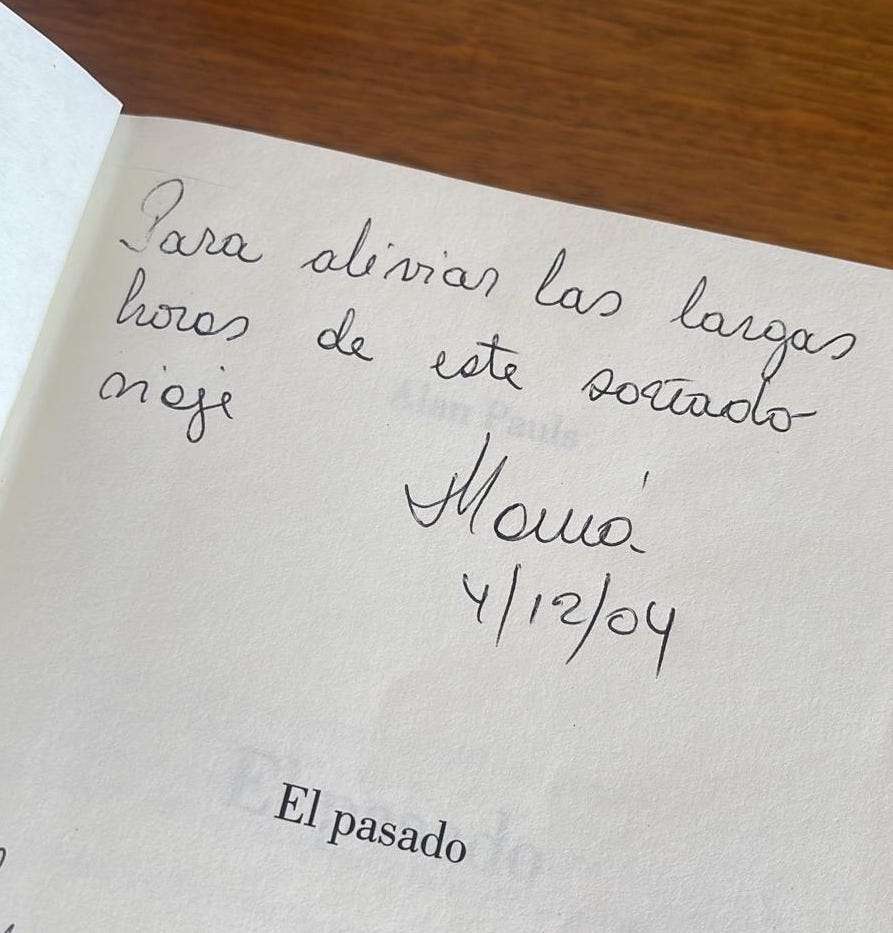 Para aliviar las largas
horas de este soñado
viaje
Alan Pauls
Mamá
4/12/04
El pasado
El pasado